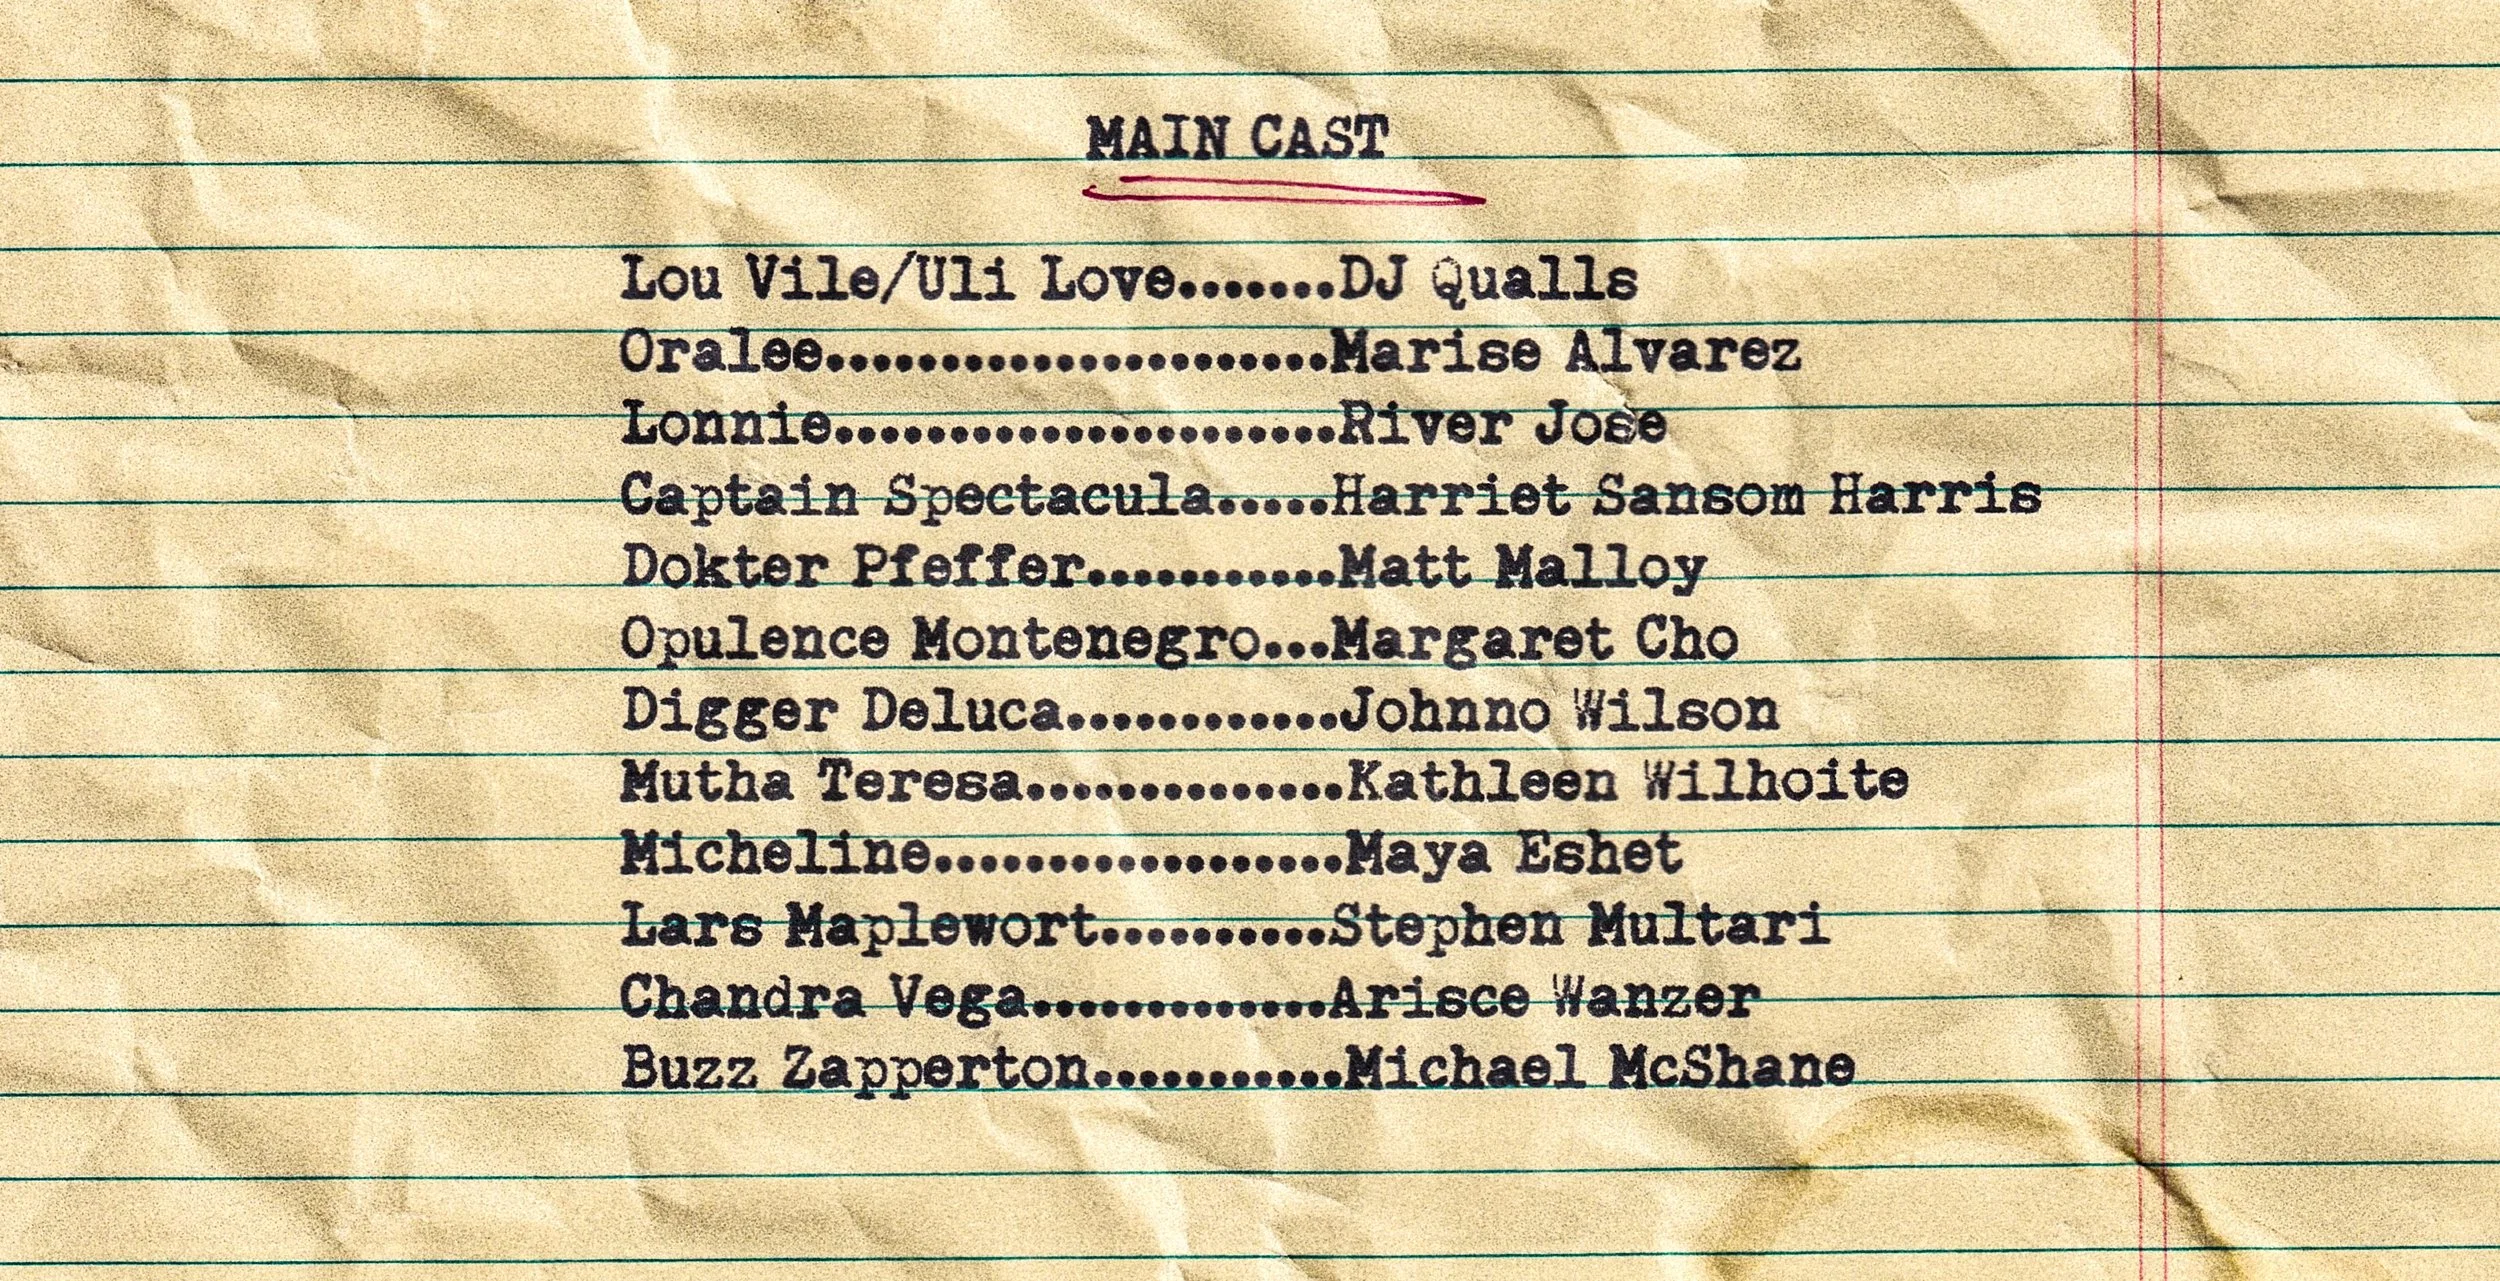 MAIN CAST
Lou Vile/Uli Love.......DJ Qualls
Oralee......................Marise Alvarez
Lonnie......................River Jose
Captain Spectacula.....Harriet Sansom Harris
Dokter Pfeffer...........Matt Malloy
Opulence Montenegro...Margaret Cho
Digger Deluca............Johnno Wilson
Mutha Teresa..............Kathleen Wilhoite
Micheline..................Maya Eshet
Lars Maplewort..........Stephen Multari
Chandra Vega.............Arisce Wanzer
Buzz Zapperton...........Michael McShane